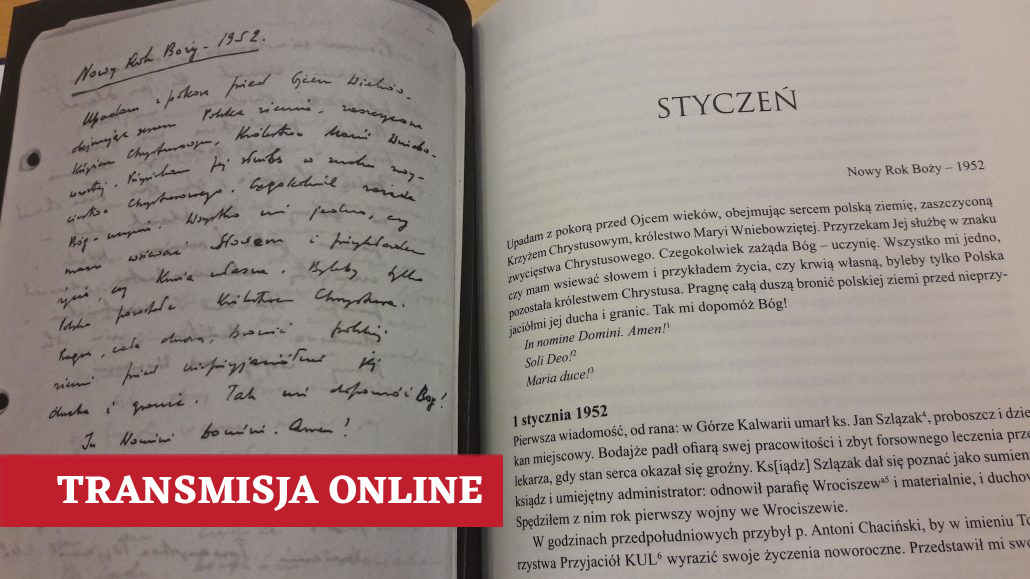 Nowy Rok Boży – 1952.
Upadam z pokorą przed Ojcem Wieków,
obejmując sercem Polską ziemię, zaszczyconą
Krzyżem Chrystusowym, Królestwo Marii Wniebo-
wziętej. Przyrzekam Jej służbę w znaku zwy-
cięstwa Chrystusowego. Czegokolwiek zażąda
Bóg – uczynię. Wszystko mi jedno, czy
mam wsiewać Słowem i przykładem
życia, czy krwią własną. Byleby tylko
Polska pozostała Królestwem Chrystusa.
Pragnę, całą duszą, bronić polskiej
ziemi przed nieprzyjaciółmi jej
ducha i granic. Tak mi dopomóż Bóg!
In Nomine Domini. Amen!
TRANSMISJA ONLINE
STYCZEŃ
Nowy Rok Boży – 1952
Upadam z pokorą przed Ojcem wieków, obejmując sercem polską ziemię, zaszczyconą
Krzyżem Chrystusowym, królestwo Maryi Wniebowziętej. Przyrzekam Jej służbę w znaku
zwycięstwa Chrystusowego. Czegokolwiek zażąda Bóg – uczynię. Wszystko mi jedno,
czy mam wsiewać słowem i przykładem życia, czy krwią własną, byleby tylko Polska
pozostała królestwem Chrystusa. Pragnę całą duszą bronić polskiej ziemi przed nieprzy-
jaciółmi jej ducha i granic. Tak mi dopomóż Bóg!
In nomine Domini. Amen!¹
Soli Deo!²
Maria duce!³
1 stycznia 1952
Pierwsza wiadomość, od rana: w Górze Kalwarii umarł ks. Jan Szlązak⁴, proboszcz i dzie
kan miejscowy. Bodajże padł ofiarą swej pracowitości i zbyt forsownego leczenia prze
lekarza, gdy stan serca okazał się groźny. Ks[iądz] Szlązak dał się poznać jako sumien
ksiądz i umiejętny administrator: odnowił parafię Wrociszewᵃ⁵ i materialnie, i duchow
Spędziłem z nim rok pierwszy wojny we Wrociszewie.
W godzinach przedpołudniowych przybył p. Antoni Chaciński, by w imieniu To
rzystwa Przyjaciół KUL⁶ wyrazić swoje życzenia noworoczne. Przedstawił mi swo